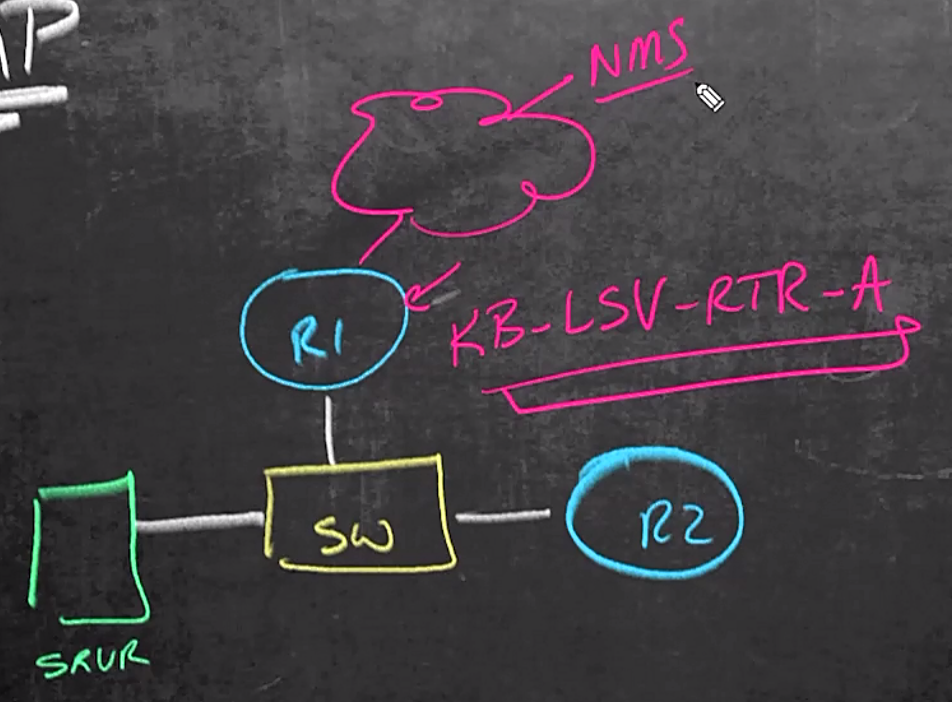 NMS
R1
KB-LSV-RTR-A
SW
R2
SRVR